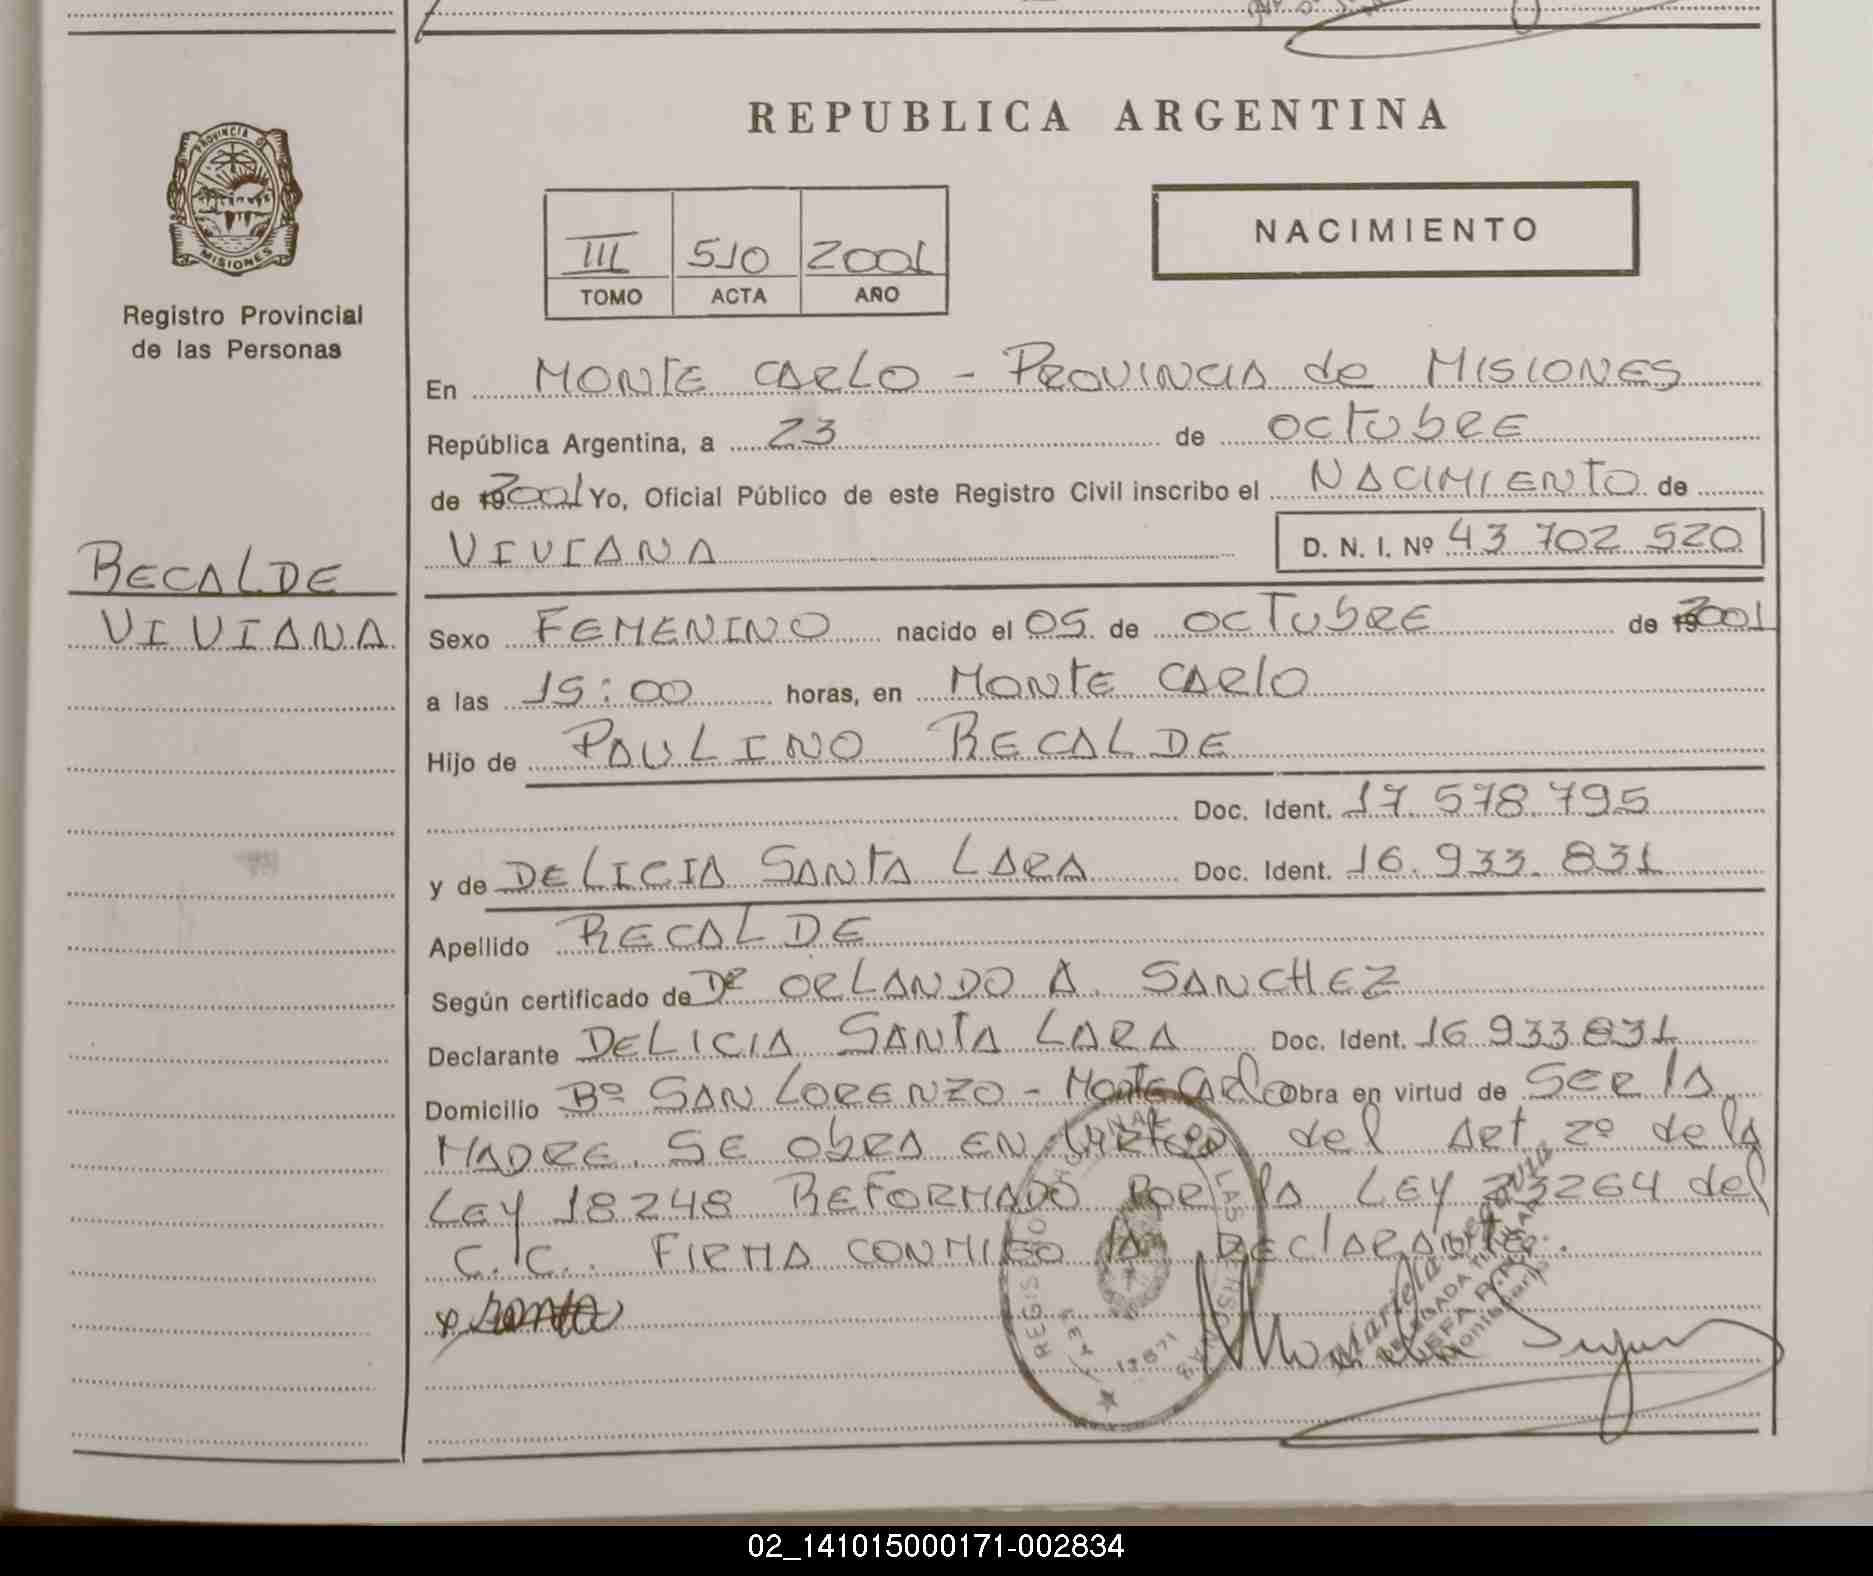 REPUBLICA ARGENTINA
PROVINCIA DE
MISIONES
Registro Provincial
de las Personas
III 510 2001
TOMO ACTA AÑO
NACIMIENTO
En MONTE CARLO - PROVINCIA de MISIONES
República Argentina, a 23 de OCTUBRE
de 192001 Yo, Oficial Público de este Registro Civil inscribo el NACIMIENTO de
VIVIANA D. N. I. Nº 43 702 520
RECALDE
VIVIANA
Sexo FEMENINO nacido el 05 de OCTUBRE de 192001
a las 15:00 horas, en MONTE CARlO
Hijo de PAULINO RECALDE
Doc. Ident. 17.578.795
y de DELICIA SANTA LARA Doc. Ident. 16.933.831
Apellido RECALDE
Según certificado de DR ORLANDO A. SANCHEZ
Declarante DELICIA SANTA LARA Doc. Ident. 16 933 831
Domicilio Bº SAN LORENZO - MONTE CARlO obra en virtud de SER lA
MADRE. SE ObRA EN VIRTUD del ART 2º de lA
LEY 18248 REFORMADO POR lA LEY 23264 del
C.C.. FIRMA CONMIGO lA DEClARANTE.
REGISTRO NACIONAL DE LAS PERSONAS
LEY 13671
Mariela Segovia
DELEGADA TITULAR
Montecarlo
02_141015000171-002834